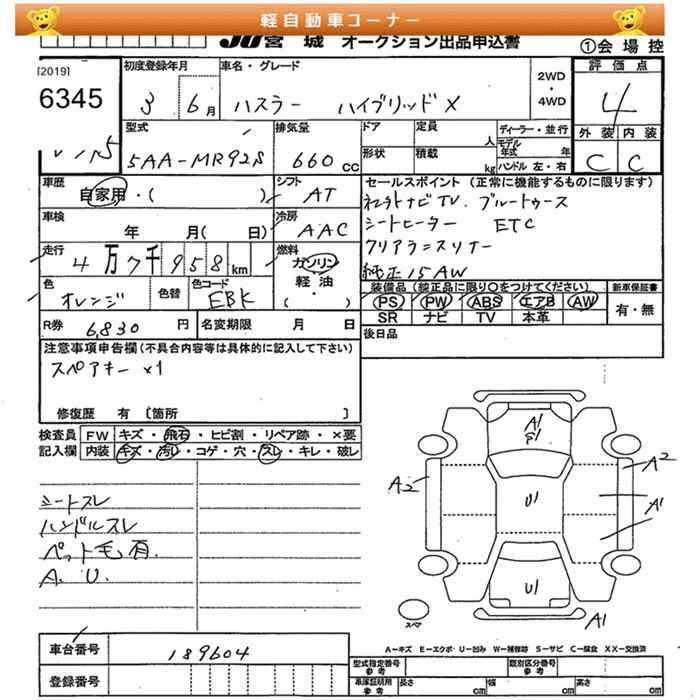 軽自動車コーナー
JU宮城 オークション出品申込書
①会場控
[2019]
6345
初度登録年月
3 6月
車名・グレード
ハスラー ハイブリッドX
2WD
・
4WD
評価点
4
外装 内装
C C
型式
5AA-MR92S
排気量
660 CC
ドア
定員
人
形状
積載
kg
ディーラー・並行
モデル年式 年
ハンドル 左・右
車歴
自家用・( )
シフト
AT
車検
年 月( 日)
冷房
AAC
走行
4万7千958km
燃料
ガソリン
軽油
・
( )
色
オレンジ
色替
色コード
EBK
R券 6,830円
名変期限 月 日
セールスポイント (正常に機能するものに限ります)
TV. ブルートゥース
シートヒーター ETC
純正15AW
装備品 (純正品に限り○をつけてください)
新車保証書
PS PW ABS エアB AW
SR ナビ TV 本革
有・無
後日品
注意事項申告欄 (不具合内容等は具体的に記入して下さい)
スペアキー ×1
修復歴 有 〔箇所 〕
検査員 FW キズ・飛石・ヒビ割・リペア跡・×要
記入欄 内装 キズ・汚れ・コゲ・穴・スレ・キレ・破レ
シートスレ
ハンドルスレ
ペット毛有.
A. U.
A1
A2
A2
U1
A1
U1
A1
スペア
A=キズ E=エクボ・U=凹み W=補修跡 S=サビ C=腐食 XX=交換済
車台番号 189604
登録番号
型式指定番号 参考
類別区分番号 参考
車庫証明用 参考
長さ cm
幅 cm
高さ cm